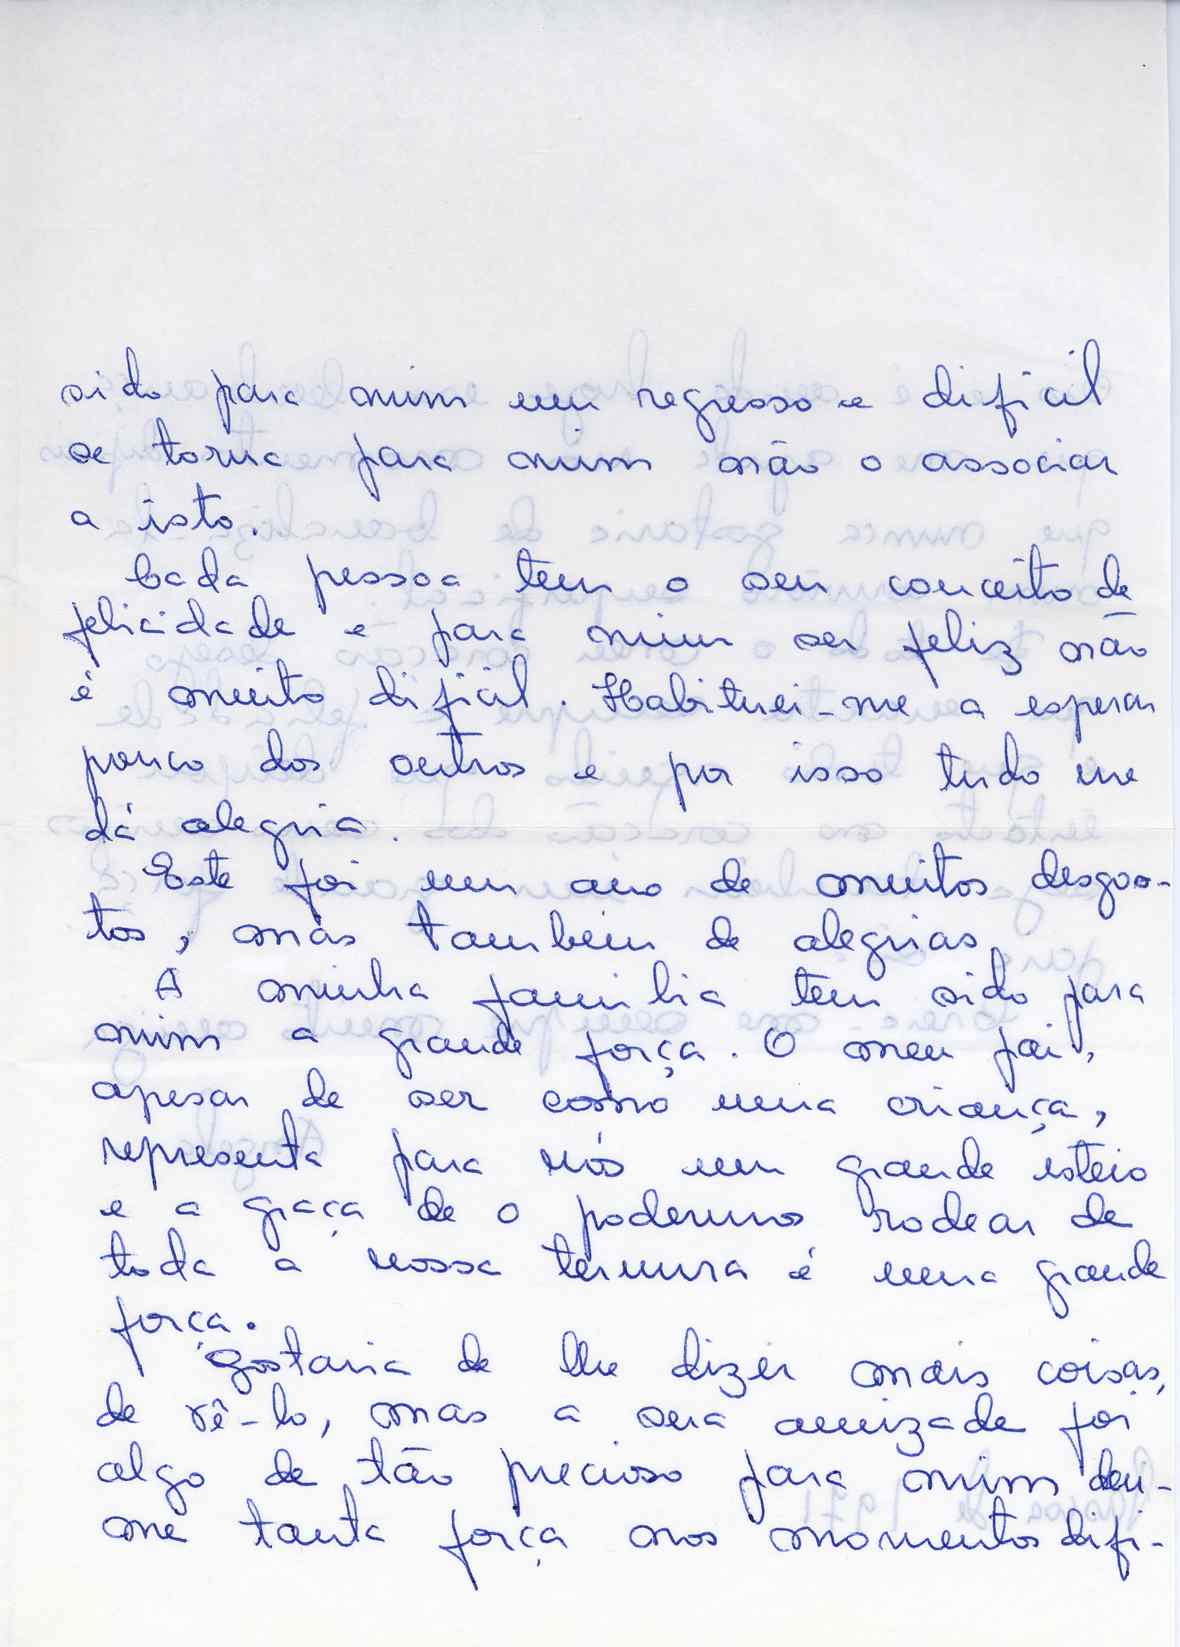 sido para mim um regresso e dificil
se torna para mim não o associar
a isto.
Cada pessoa tem o seu conceito de
felicidade e para mim ser feliz não
é muito dificil. Habituei-me a esperar
pouco dos outros e por isso tudo me
dá alegria.
Este foi um ano de muitos desgos-
tos, mas também de alegrias.
A minha familia tem sido para
mim a grande força. O meu pai,
apesar de ser como uma criança,
representa para nós um grande esteio
e a graça de o podermos rodear de
toda a nossa ternura é uma grande
força.
Gostaria de lhe dizer mais coisas,
de vê-lo, mas a sua amizade foi
algo de tão precioso para mim deu-
me tanta força nos momentos difi-